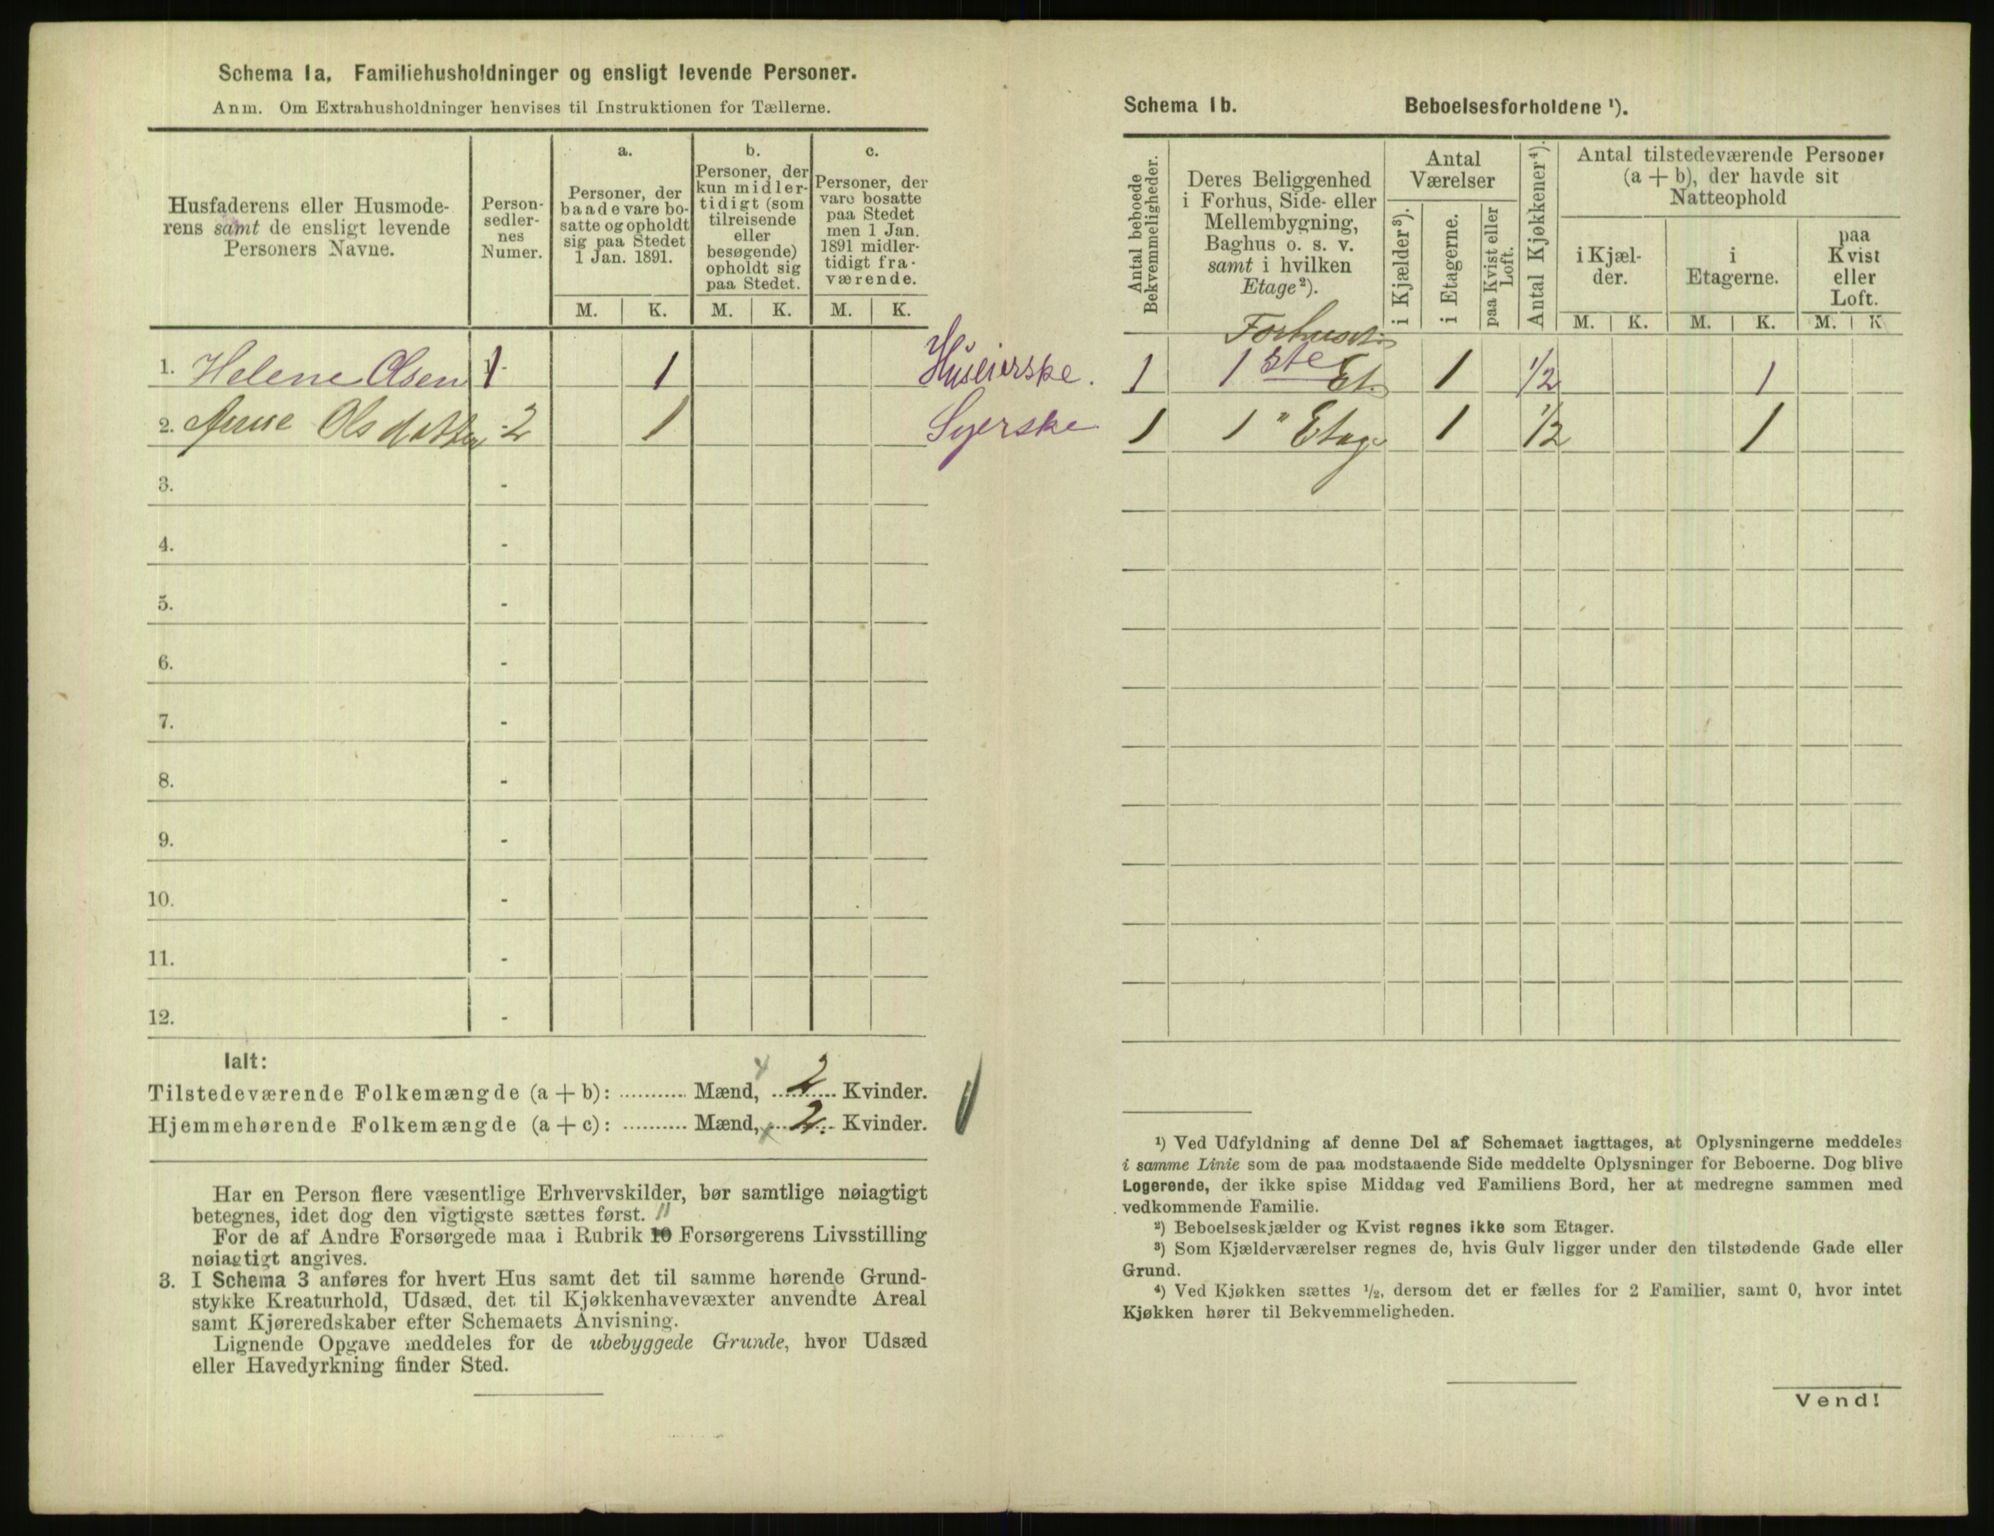 Schema 1a. Familiehusholdninger og ensligt levende Personer.
Anm. Om Extrahusholdninger henvises til Instruktionen for Tællerne.
Husfaderens eller Husmode-
rens samt de ensligt levende
Personers Navne.
Person-
sedler-
nes
Numer.
a.
Personer, der
baade vare bo-
satte og opholdt
sig paa Stedet
1 Jan. 1891.
b.
Personer, der
kun midler-
tidigt (som
tilreisende
eller
besøgende)
opholdt sig
paa Stedet.
c.
Personer, der
vare bosatte
paa Stedet
men 1 Jan.
1891 midler-
tidigt fra-
værende.
M. K. M. K. M. K.
1. Helene Olsen 1 1 Huseierske.
2. Anne Olsdatter 2 1 Syerske
3. -
4. -
5. -
6. -
7. -
8. -
9. -
10. -
11. -
12. -
Ialt:
Tilstedeværende Folkemængde (a + b): ........... Mænd, 2 Kvinder.
Hjemmehørende Folkemængde (a + c): ........... Mænd, 2. Kvinder.
Har en Person flere væsentlige Erhvervskilder, bør samtlige nøiagtigt
betegnes, idet dog den vigtigste sættes først.
11
For de af Andre Forsørgede maa i Rubrik 10 Forsørgerens Livsstilling
nøiagtigt angives.
3. I Schema 3 anføres for hvert Hus samt det til samme hørende Grund-
stykke Kreaturhold, Udsæd, det til Kjøkkenhavevæxter anvendte Areal
samt Kjøreredskaber efter Schemaets Anvisning.
Lignende Opgave meddeles for de ubebyggede Grunde, hvor Udsæd
eller Havedyrkning finder Sted.
Schema 1b. Beboelsesforholdene ¹).
Antal beboede
Bekvemmeligheder.
Deres Beliggenhed
i Forhus, Side- eller
Mellembygning,
Baghus o. s. v.
samt i hvilken
Etage²).
Antal
Værelser
i Kjælder³).
i Etagerne.
paa Kvist eller
Loft.
Antal Kjøkkener⁴).
Antal tilstedeværende Personer
(a + b), der havde sit
Natteophold
i Kjæl-
der.
i
Etagerne.
paa
Kvist
eller
Loft.
M. K. M. K. M. K
Forhuset
1 1ste Et. 1 1/2 1
1 1 " Etage 1 1/2 1
¹) Ved Udfyldning af denne Del af Schemaet iagttages, at Oplysningerne meddeles
i samme Linie som de paa modstaaende Side meddelte Oplysninger for Beboerne. Dog blive
Logerende, der ikke spise Middag ved Familiens Bord, her at medregne sammen med
vedkommende Familie.
²) Beboelseskjælder og Kvist regnes ikke som Etager.
³) Som Kjælderværelser regnes de, hvis Gulv ligger under den tilstødende Gade eller
Grund.
⁴) Ved Kjøkken sættes ½, dersom det er fælles for 2 Familier, samt 0, hvor intet
Kjøkken hører til Bekvemmeligheden.
Vend!